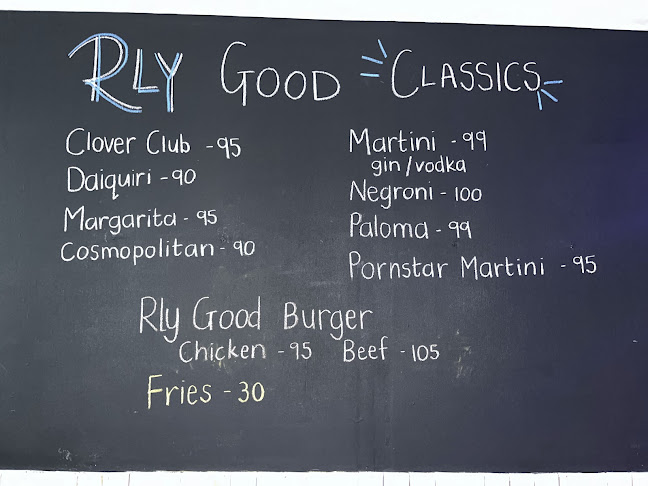 Rly Good Classics
Clover Club - 95
Daiquiri - 90
Margarita - 95
Cosmopolitan - 90
Martini - 99
gin/vodka
Negroni - 100
Paloma - 99
Pornstar Martini - 95
Rly Good Burger
Chicken - 95 Beef - 105
Fries - 30